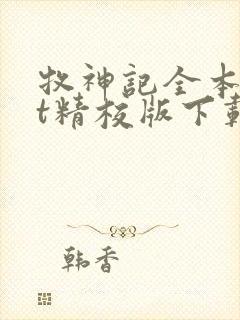 牧神記全本
t精校版下載
韩香